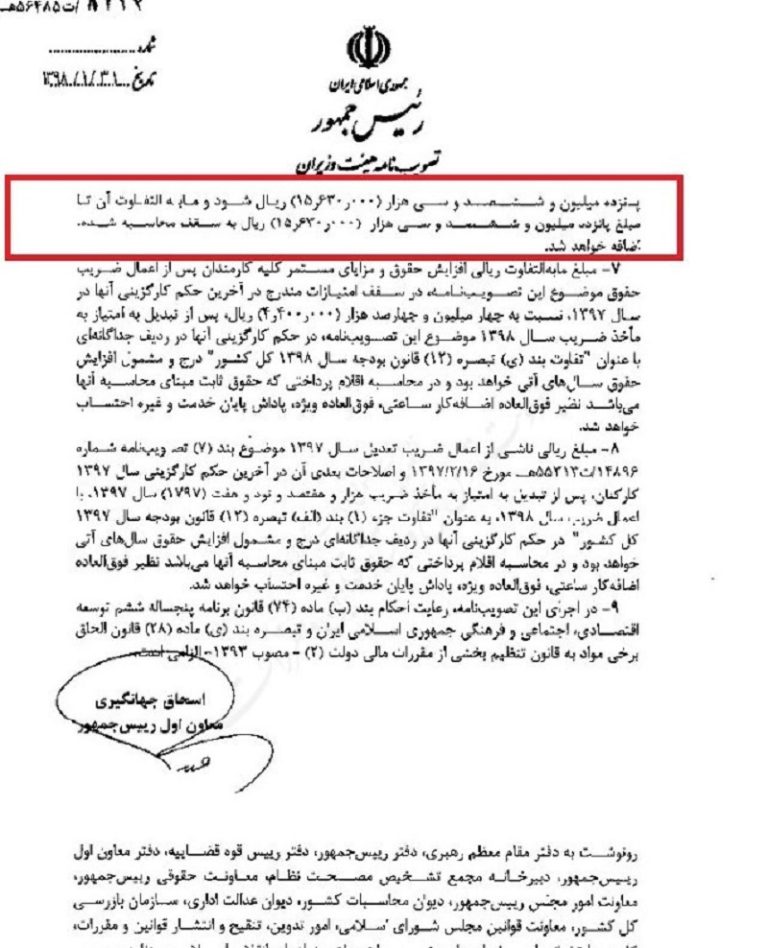 /ت۵۶۴۸۵هـ
شماره
تاریخ ۱۳۹۸/۱/۳۱
جمهوری اسلامی ایران
رئیس جمهور
تصویب نامه هیئت وزیران
پانزده میلیون و ششصد و سی هزار (۱۵٫۶۳۰٫۰۰۰) ریال شود و مابه التفاوت آن تا
مبلغ پانزده میلیون و ششصد و سی هزار (۱۵٫۶۳۰٫۰۰۰) ریال به سقف محاسبه شده،
اضافه خواهد شد.
۷- مبلغ مابه‌التفاوت ریالی افزایش حقوق و مزایای مستمر کلیه کارمندان پس از اعمال ضریب
حقوق موضوع این تصویب‌نامه، در سقف امتیازات مندرج در آخرین حکم کارگزینی آنها در
سال ۱۳۹۷، نسبت به چهار میلیون و چهارصد هزار (۴٫۴۰۰٫۰۰۰) ریال، پس از تبدیل به امتیاز به
مأخذ ضریب سال ۱۳۹۸ موضوع این تصویب‌نامه، در حکم کارگزینی آنها در ردیف جداگانه‌ای
با عنوان "تفاوت بند (ی) تبصره (۱۲) قانون بودجه سال ۱۳۹۸ کل کشور" درج و مشمول افزایش
حقوق سال‌های آتی خواهد بود و در محاسبه اقلام پرداختی که حقوق ثابت مبنای محاسبه آنها
می‌باشد نظیر فوق‌العاده اضافه‌کار ساعتی، فوق‌العاده ویژه، پاداش پایان خدمت و غیره احتساب
خواهد شد.
۸- مبلغ ریالی ناشی از اعمال ضریب تعدیل سال ۱۳۹۷ موضوع بند (۷) تصویب‌نامه شماره
۱۴۸۹۶/ت۵۵۲۱۳هـ مورخ ۱۳۹۷/۲/۱۶ و اصلاحات بعدی آن در آخرین حکم کارگزینی سال ۱۳۹۷
کارکنان، پس از تبدیل به امتیاز به مأخذ ضریب هزار و هفتصد و نود و هفت (۱۷۹۷) سال ۱۳۹۷، با
اعمال ضریب سال ۱۳۹۸، به عنوان "تفاوت جزء (۱) بند (الف) تبصره (۱۲) قانون بودجه سال ۱۳۹۷
کل کشور" در حکم کارگزینی آنها در ردیف جداگانه‌ای درج و مشمول افزایش حقوق سال‌های آتی
خواهد بود و در محاسبه اقلام پرداختی که حقوق ثابت مبنای محاسبه آنها می‌باشد نظیر فوق‌العاده
اضافه‌کار ساعتی، فوق‌العاده ویژه، پاداش پایان خدمت و غیره احتساب خواهد شد.
۹- در اجرای این تصویب‌نامه، رعایت احکام بند (ب) ماده (۷۴) قانون برنامه پنجساله ششم توسعه
اقتصادی، اجتماعی و فرهنگی جمهوری اسلامی ایران و تبصره بند (ی) ماده (۲۸) قانون الحاق
برخی مواد به قانون تنظیم بخشی از مقررات مالی دولت (۲) - مصوب ۱۳۹۳- الزامی است.
اسحاق جهانگیری
معاون اول رییس‌جمهور
رونوشت به دفتر مقام معظم رهبری، دفتر رییس‌جمهور، دفتر رییس قوه قضاییه، دفتر معاون اول
رییس‌جمهور، دبیرخانه مجمع تشخیص مصلحت نظام، معاونت حقوقی رییس‌جمهور،
معاونت امور مجلس رییس‌جمهور، دیوان محاسبات کشور، دیوان عدالت اداری، سازمان بازرسی
کل کشور، معاونت قوانین مجلس شورای اسلامی، امور تدوین، تنقیح و انتشار قوانین و مقررات،